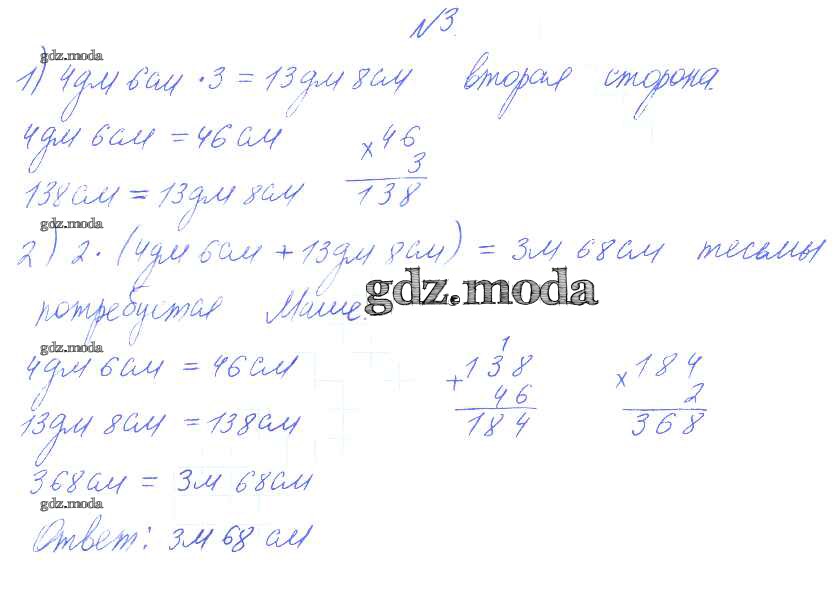 №3.
gdz.moda
1) 4дм 6см · 3 = 13дм 8см вторая сторона.
4дм 6см = 46см
× 46
3
138
138см = 13дм 8см
gdz.moda
2) 2 · (4дм 6см + 13дм 8см) = 3м 68см тесьмы
потребуется Маше.
gdz.moda
gdz.moda
4дм 6см = 46см
13дм 8см = 138см
1
+ 138
46
184
× 184
2
368
368см = 3м 68см
gdz.moda
Ответ: 3м 68 см